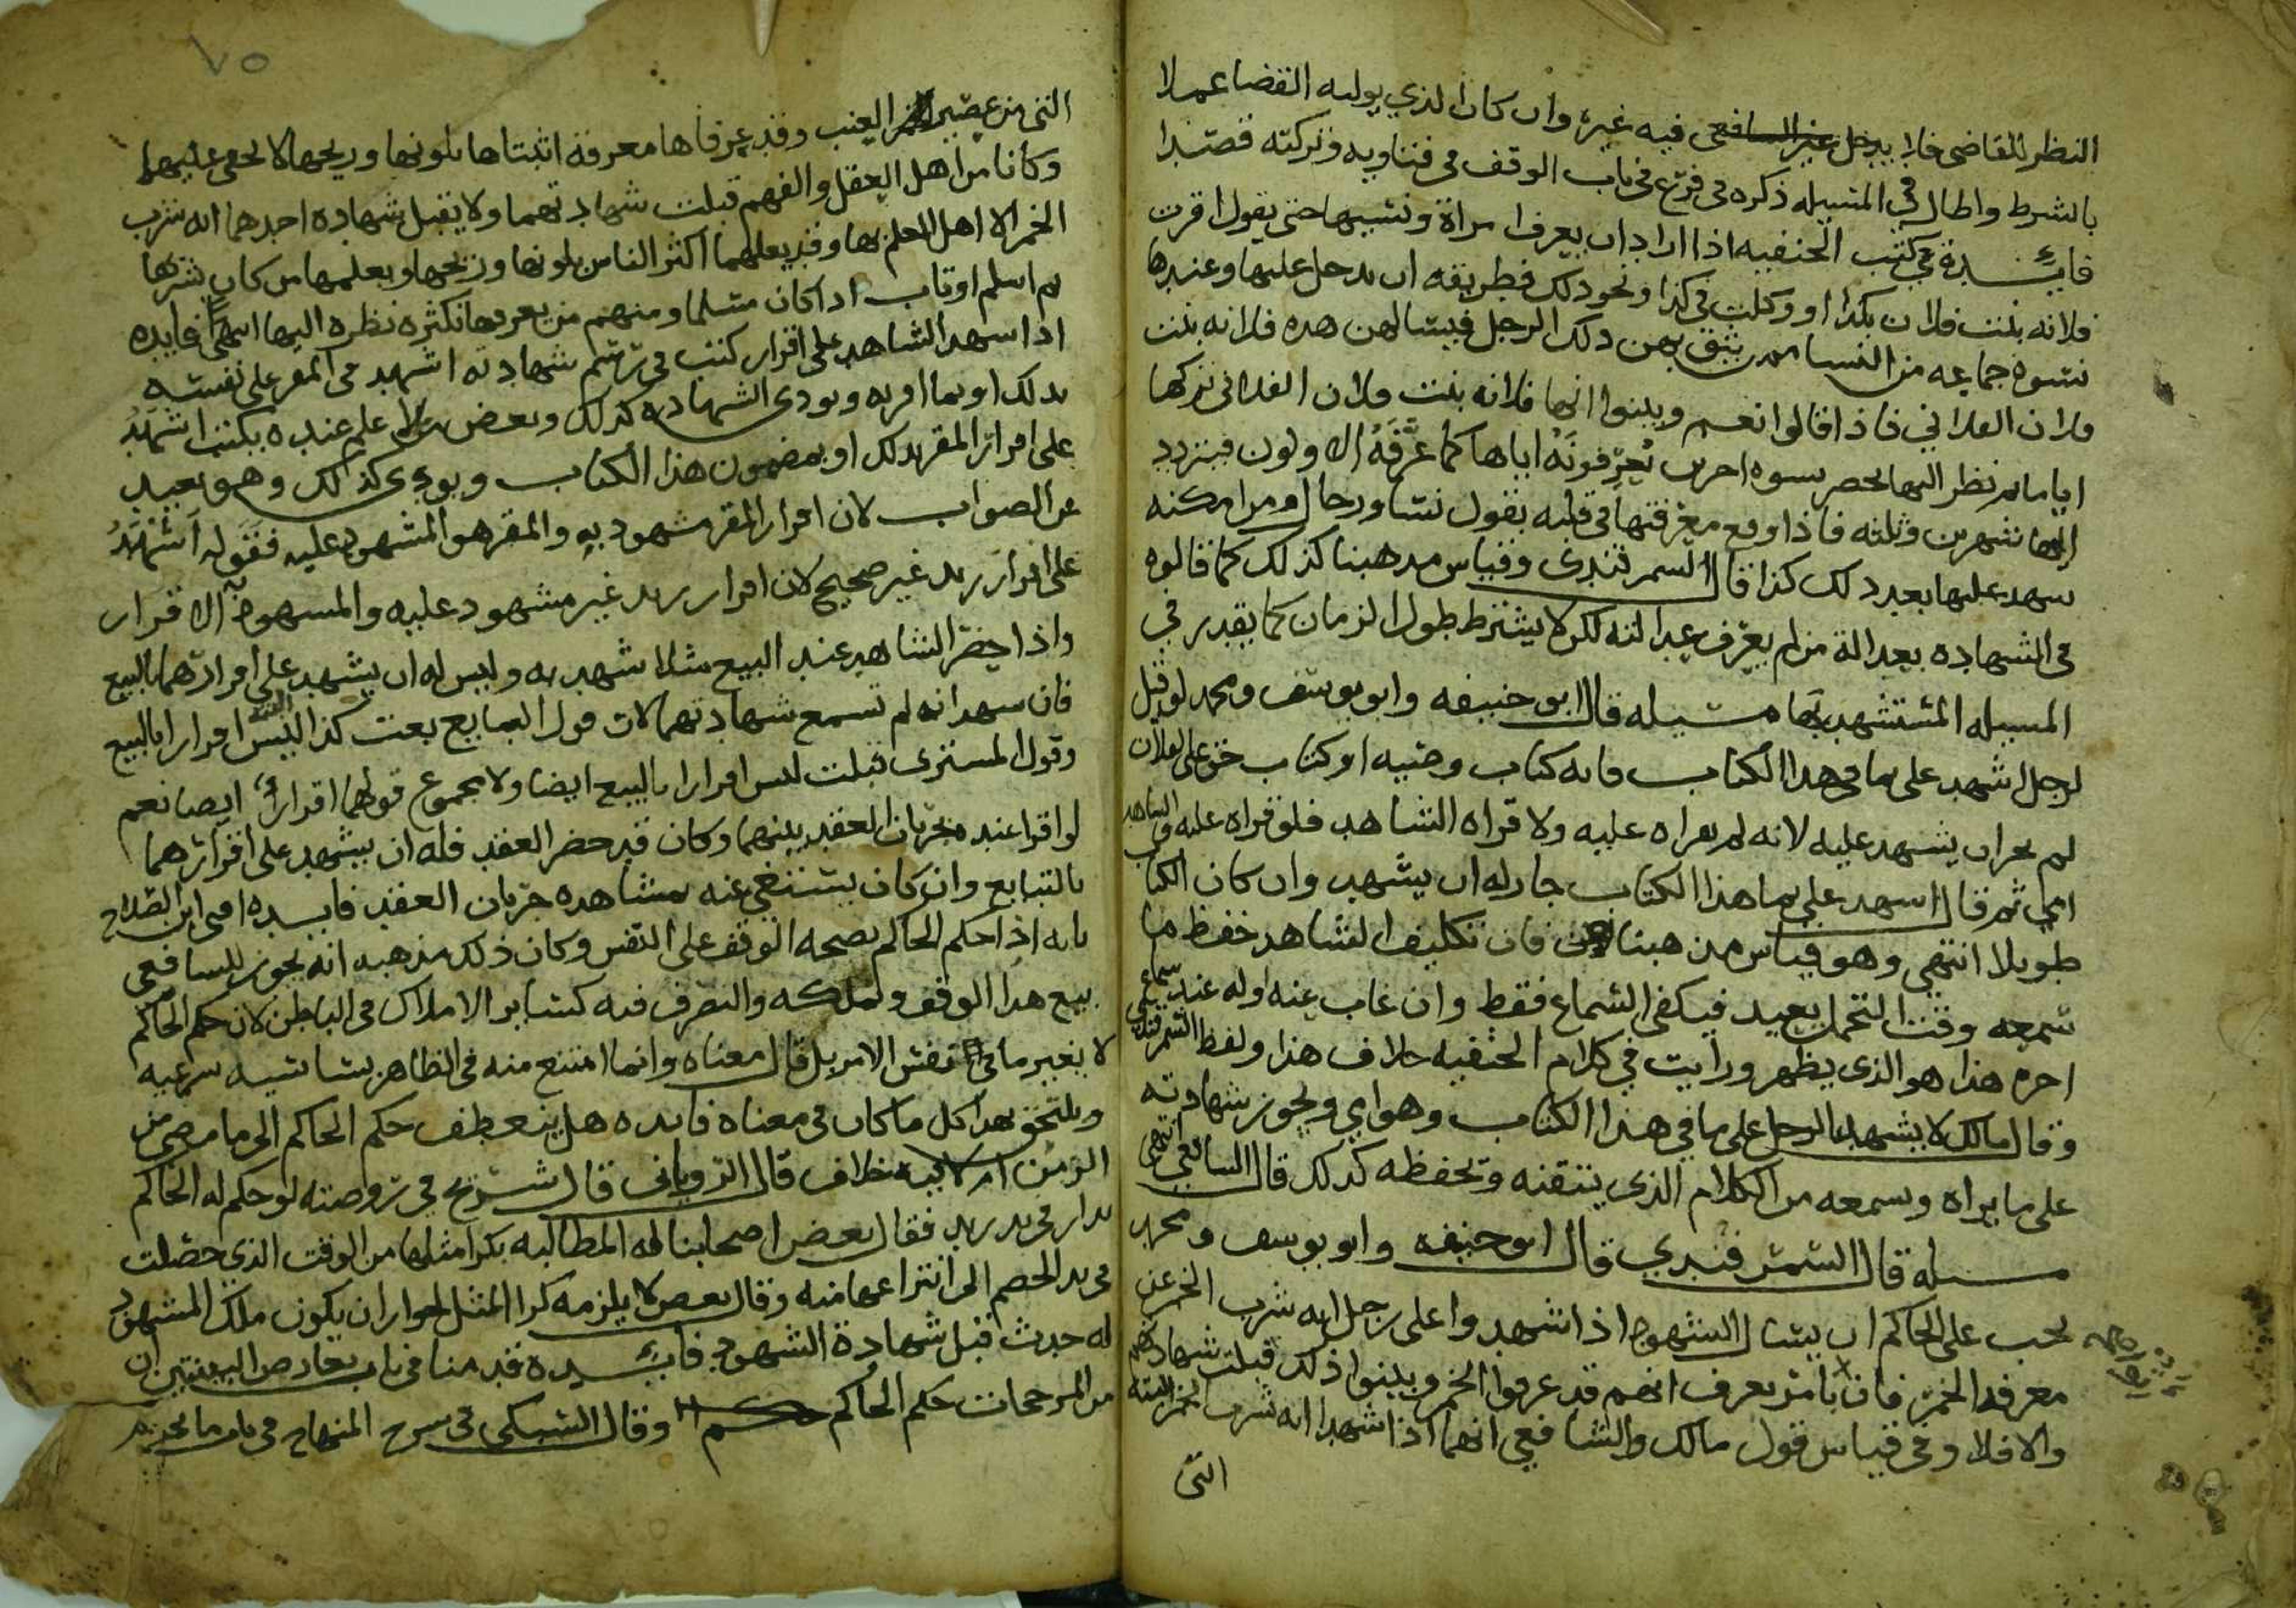 النظر للقاضي فلا يدخل غير الشافعي فيه غيره وان كان الذي يوليه القضا عملا
بالشرط واطال في المسيله ذكره في فرع في باب الوقف في فتاويه وتركته قصدا
فايدة في كتب الحنفيه اذا اراد ان يعرف امراة ونسبها حتى يقول اقرت
فلانه بنت فلان بكذا او وكلت في كذا ونحو ذلك فطريقه ان يدخل عليها وعندها
نسوه جماعه من النسا ممن يثق بهن ذلك الرجل فيسالهن هذه فلانه بنت
فلان الفلاني فاذا قالوا نعم وبينوا انها فلانه بنت فلان الفلاني تركها
اياما ثم نظر اليها بحضر نسوه اخرين تُعرِّفونَهُ اياها كما عَرَّفَهُ الاولون فيتردد
اليها شهرين وثلثه فاذا وقع معرفتها في قلبه بقول نسا ورجال ومن امكنه
شهد عليها بعد ذلك كذا قال السمرقندي وقياس مذهبنا كذلك كما قالوه
في الشهاده بعدالة من لم يعرف عدالته لكن لا يشترط طول الزمان كما يقدر في
المسيله المستشهد بها مسيله قال ابو حنيفه وابو يوسف ومحمد لو قيل
لرجل اشهد على ما في هذا الكتاب فانه كتاب وصيه او كتاب حق على لفلان
لم يجز ان يشهد عليه لانه لم يقراه عليه ولا قراه الشاهد فلو قراه عليه والشاهد
امي ثم قال اشهد على بما هذا الكتاب جاز له ان يشهد وان كان الكتاب
طويلا انتهى وهو قياس مذهبنا فان تكليف الشاهد حفظ ما
سمعه وقت التحمل بعيد فيكفي السماع فقط وان غاب عنه اوله عند سماع
اخره هذا هو الذي يظهر ورايت في كلام الحنفيه خلاف هذا ولفظ السمرقندي
وقال مالك لا يشهد الرجل على ما في هذا الكتاب وهو امي ويجوز شهادته
على ما يراه ويسمعه من الكلام الذي يتقنه وتحفظه كذلك قال الشافعي انتهى
مسيله قال السمرقندي قال ابو حنيفه وابو يوسف ومحمد
يجب على الحاكم ان يسال الشهود اذا شهدوا على رجل انه شرب الخمر عن
معرفة الخمر فان بامر يعرف انهم قد عرفوا الخمر وبينوا ذلك قبلت شهادتهم
والا فلا وفي قياس قول مالك والشافعي انهما اذا شهدا انه شرب الخمر البتة
التي
٧٥
التي من عصير العنب وقد عرفاها معرفة اثبتاها بلونها وريحها لا يخفى عليهما
وكانا من اهل العقل والفهم قبلت شهادتهما ولا يقبل شهادة احدهما انه شرب
الخمر الا اهل العلم بها وقد يعلمهما اكثر الناس بلونها وريحها ويعلمها من كان شربها
ثم اسلم او تاب اذا كان مسلما ومنهم من يعرفها بكثرة نظره اليها انتهى فايده
اذا شهد الشاهد على اقرار كتب في رسم شهادته اشهد في المقر على نفسه
بذلك او بما اقر به ويودي الشهاده كذلك وبعض من لا علم عنده يكتب اشهَدُ
على اقرار المقر بذلك او بمضمون هذا الكتاب ويودي كذلك وهو بعيد
عن الصواب لان اقرار المقر مشهود به والمقر هو المشهود عليه فقوله اَشْهَدُ
على اقرار زيد غير صحيح لان اقرار زيد غير مشهود عليه والمشهود به الاقرار
واذا حضر الشاهد عند البيع مثلا شهد به وليس له ان يشهد على اقرارهما بالبيع
فان شهد انه لم تسمع شهادتهما لان قول البايع بعت كذا ليس اقرارا بالبيع
وقول المشتري قبلت ليس اقرارا بالبيع ايضا ولا مجموع قولهما اقراراً ايضا نعم
لو اقرا عنده بجريان العقد بينهما وكان قد حضر العقد فله ان يشهد على اقرارهما
بالتبايع وان كان يستغني عنه بمشاهده جريان العقد فايده افتى ابن الصلاح
بانه اذا حكم الحاكم بصحه الوقف على النفس وكان ذلك مذهبه انه يجوز للشافعي
بيع هذا الوقف وتملكه والتصرف فيه كساير الاملاك في الباطن لان حكم الحاكم
لا يغير ما في نفس الامر بل قال معناه وانما امتنع منه في الظاهر سياسيه شرعيه
ويلتحق بهذا كل ما كان في معناه فايده هل ينعطف حكم الحاكم الى ما مضى من
الزمن ام لا فيه خلاف قال الروياني قال شريح في روضته لو حكم له الحاكم
بدار في يد زيد فقال بعض اصحابنا له المطالبه بكرا مثلها من الوقت الذي حصلت
في يد الخصم الى انتزاعها منه وقال بعض لا يلزمه كرا المثل لجواز ان يكون ملك المشهود
له حدث قبل شهادة الشهود فايده قد منا في باب تعارض البينتين ان
من المرجحات حكم الحاكم وقال السبكي في شرح المنهاج في باب ما يحرم